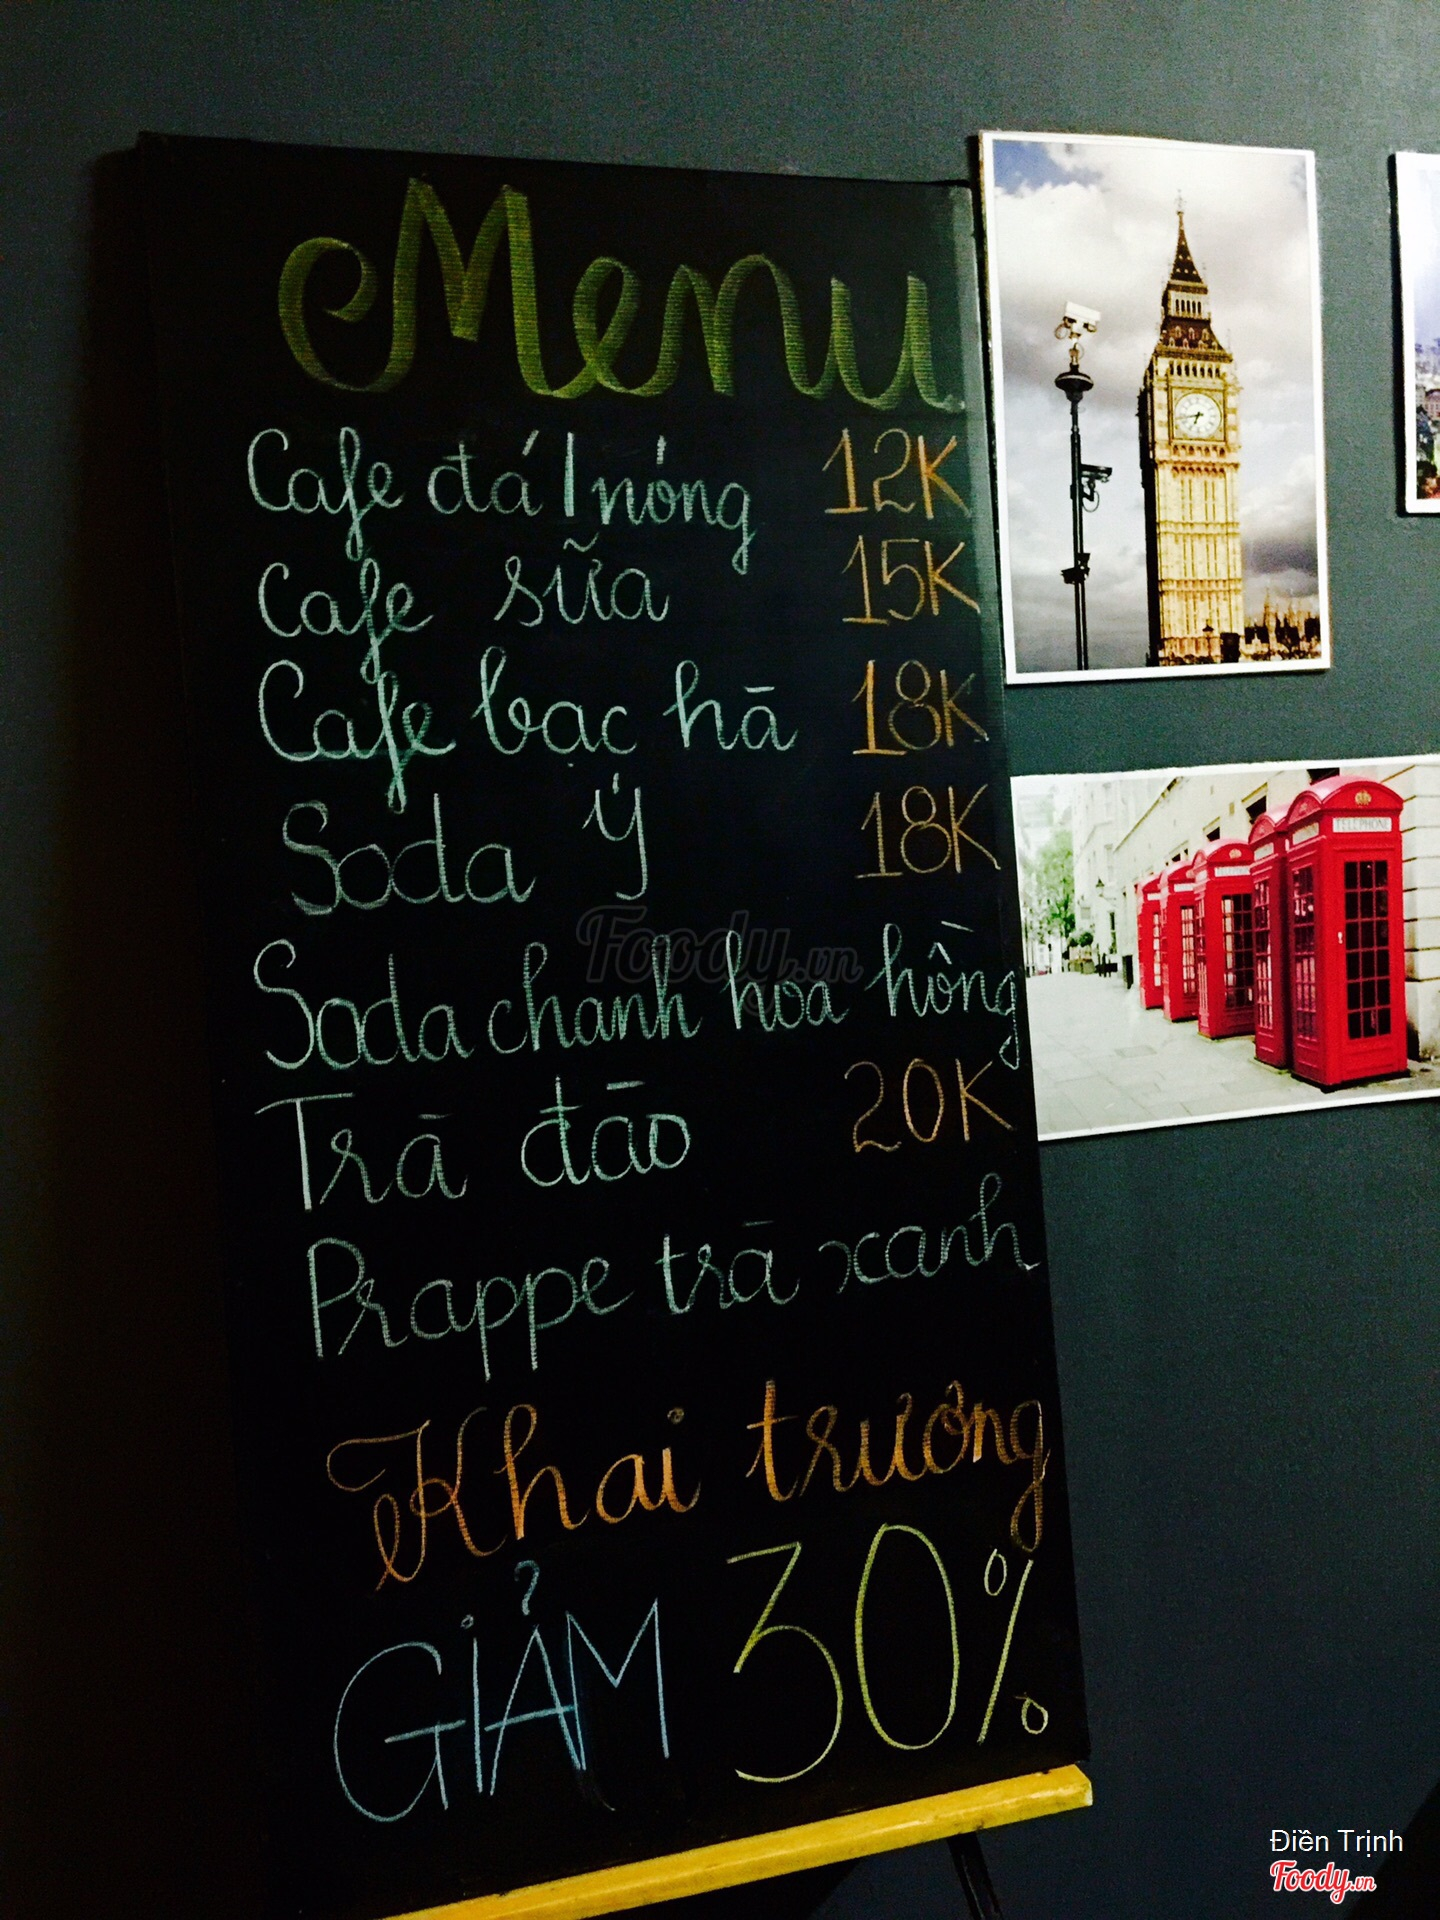 Menu
Cafe đá/nóng 12K
Cafe sữa 15K
Cafe bạc hà 18K
Soda Ý 18K
Soda chanh hoa hồng
Trà đào 20K
Prappe trà xanh
Khai trương
GIẢM 30%
TELEPHONE
Foody.vn
Điền Trịnh
Foody.vn